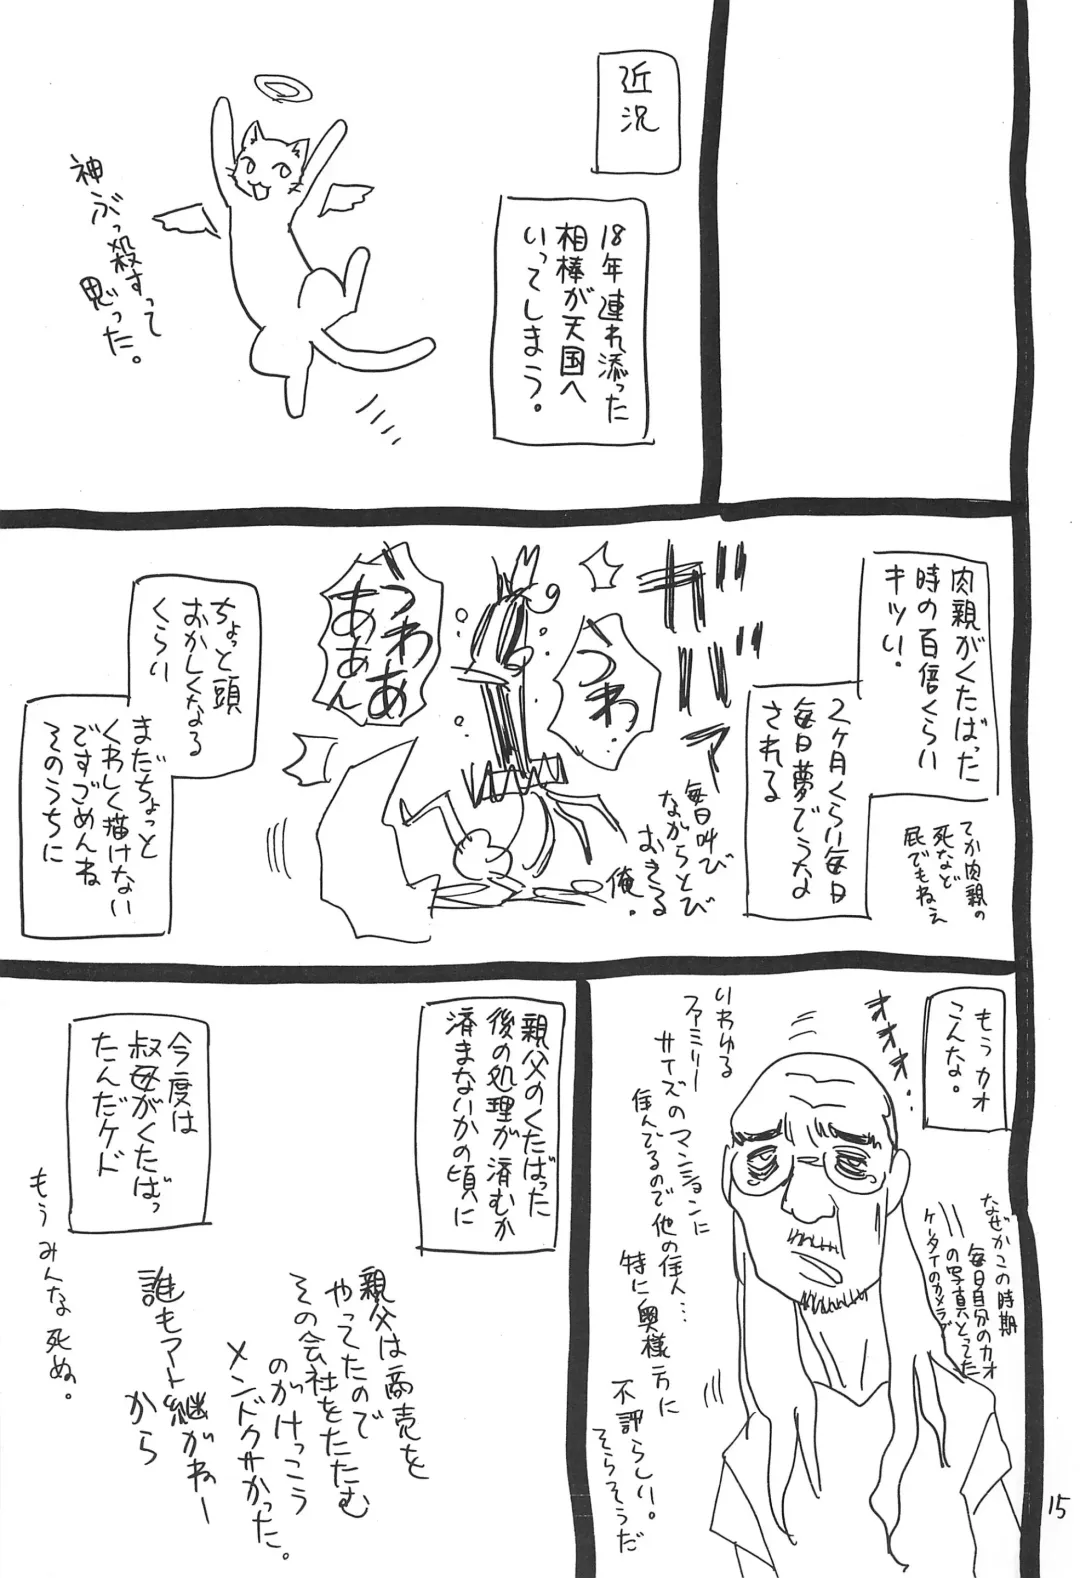 近況
18年連れ添った
相棒が天国へ
いってしまう。
神ぶっ殺すって
思った。
肉親がくたばった
時の百倍くらい
キツい.
てか肉親の
死など
屁でもねえ
2ヶ月くらい毎日
毎日夢でうな
される
ガバァ
うわ
うわあ
ああん
毎日叫び
ながらとび
おきる
俺.
ちょっと頭
おかしくなる
くらい
まだちょっと
くわしく描けない
ですごめんね
そのうちに
もうカオ
こんな。
オオオ...
なぜかこの時期
毎日自分のカオ
の写真とってた
ケータイのカメラで
いわゆる
ファミリー
サイズのマンションに
住んでるので他の住人…
特に奥様方に
不評らしい。
そらそうだ
親父のくたばった
後の処理が済むか
済まないかの頃に
今度は
叔母がくたばっ
たんだケド
親父は商売を
やってたので
その会社をたたむ
のがけっこう
メンドクサかった。
誰もアト継がねー
から
もうみんな死ぬ。
15